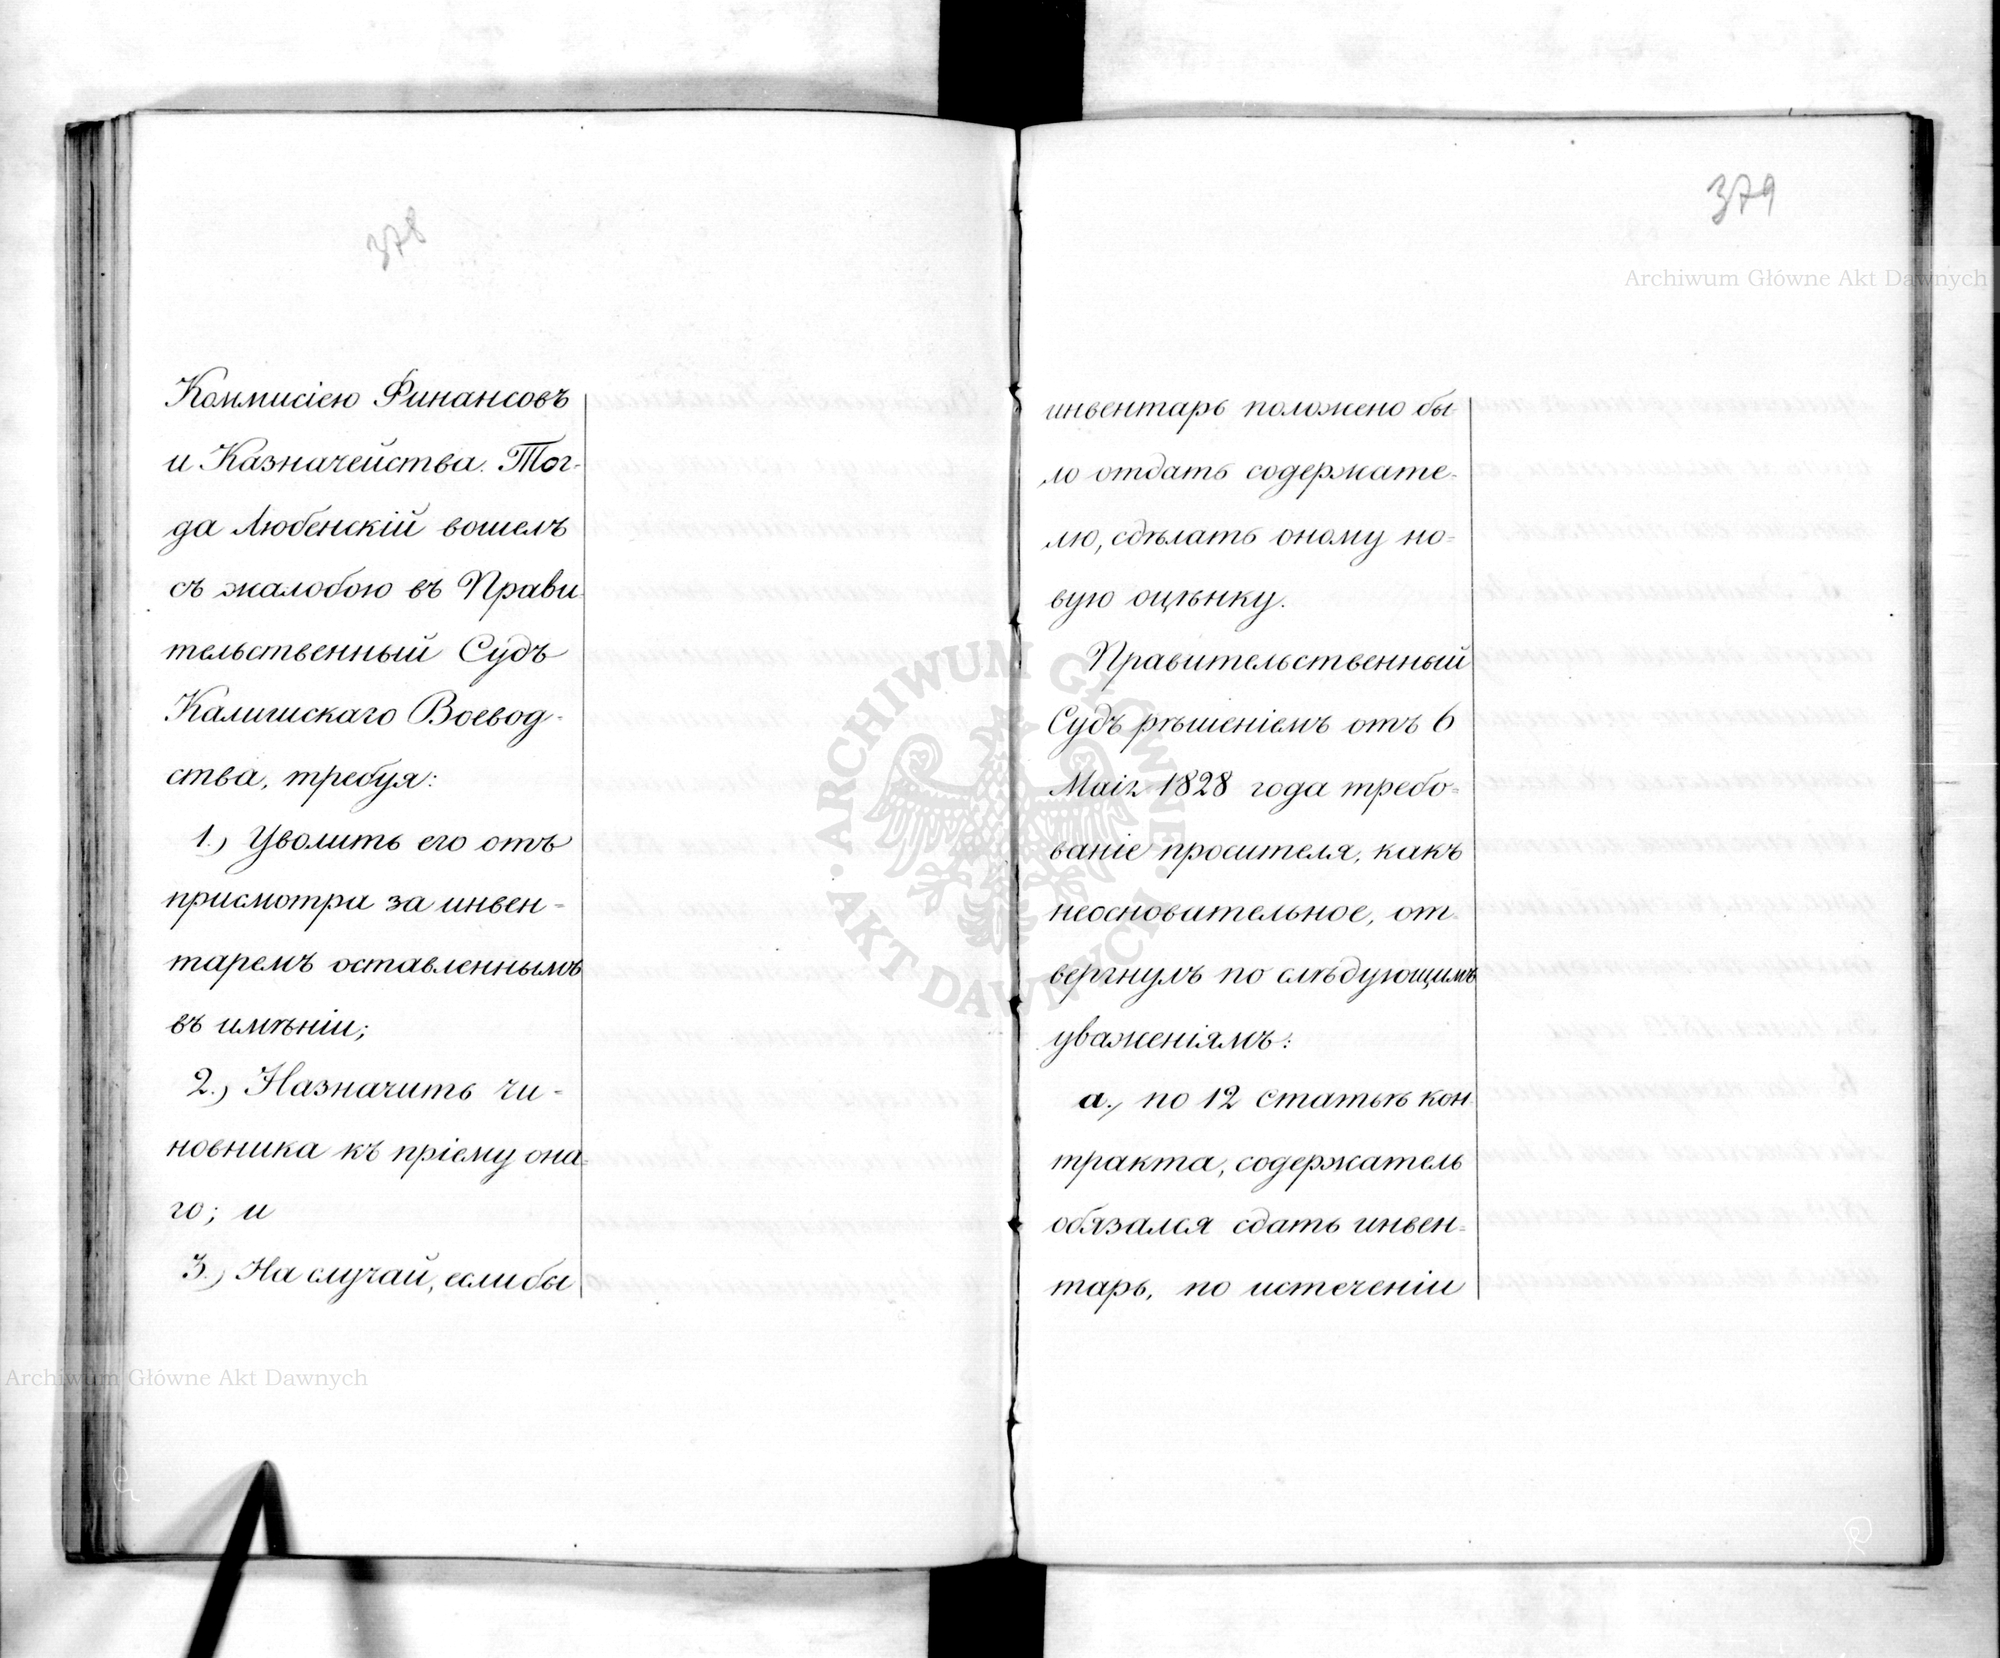 378
Коммисіею Финансовъ
и Казначейства. Тог-
да Любенскій вошелъ
съ жалобою въ Прави-
тельственный Судъ
Калишскаго Воевод-
ства, требуя:
1.) Уволить его отъ
присмотра за инвен-
таремъ оставленнымъ
въ имѣніи;
2.) Назначить чи-
новника къ пріему она-
го; и
3.) На случай, еслибы
379
Archiwum Główne Akt Dawnych
инвентарь положено бы-
ло отдать содержате-
лю, сдѣлать оному но-
вую оцѣнку.
Правительственный
Судъ рѣшеніемъ отъ 6
Маія 1828 года требо-
ваніе просителя, какъ
неосновательное, от-
вергнулъ по слѣдующимъ
уваженіямъ:
а., по 12 статьѣ кон-
тракта, содержатель
обязался сдать инвен-
тарь, по истеченіи
ARCHIWUM GŁÓWNE · AKT DAWNYCH ·
Archiwum Główne Akt Dawnych